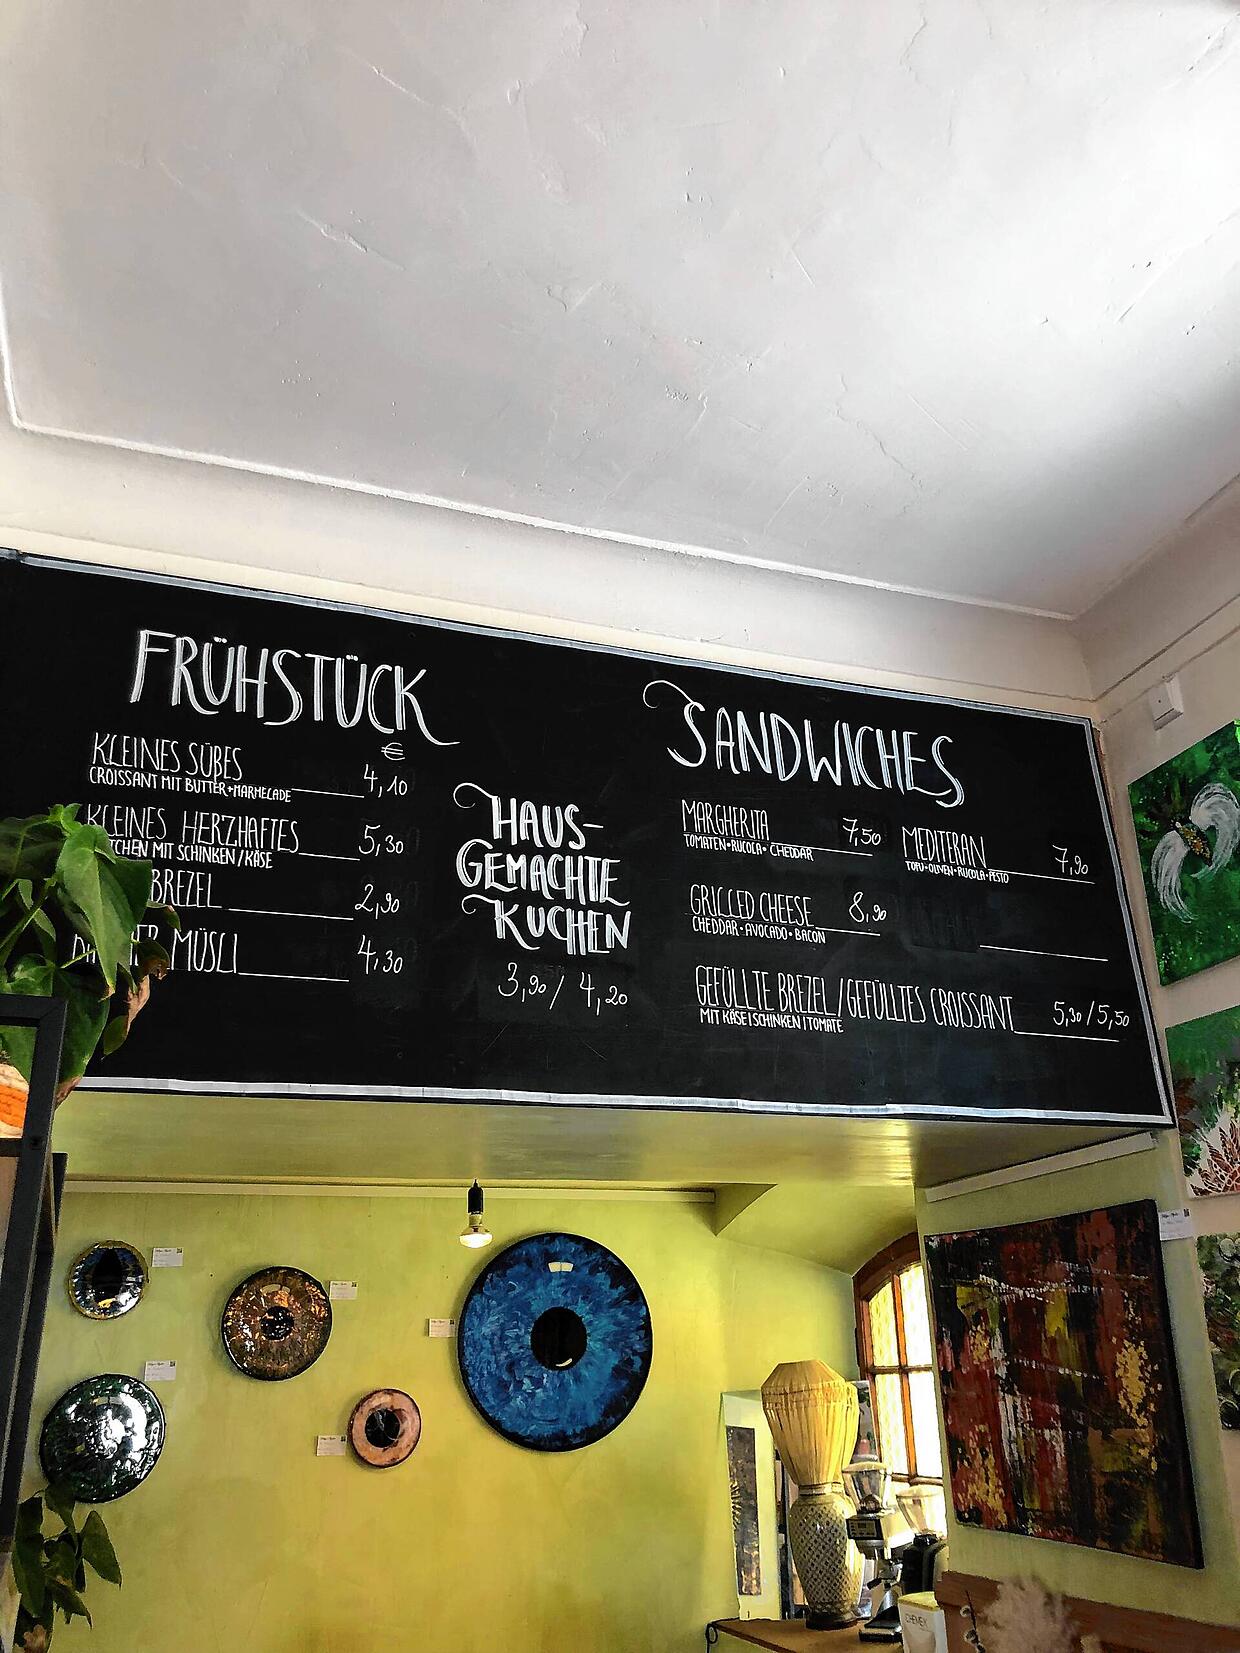 FRÜHSTÜCK
€
KLEINES SÜßES 4,10
CROISSANT MIT BUTTER+MARMELADE
KLEINES HERZHAFTES 5,30
MIT SCHINKEN/KÄSE
BREZEL 2,90
MÜSLI 4,30
HAUS-
GEMACHTE
KUCHEN
3,90/ 4,20
SANDWICHES
MARGHERITA 7,50
TOMATEN•RUCOLA•CHEDDAR
MEDITERAN 7,90
TOFU•OLIVEN•RUCOLA•PESTO
GRILLED CHEESE 8,90
CHEDDAR•AVOCADO•BACON
GEFÜLLTE BREZEL/GEFÜLLTES CROISSANT 5,30/5,50
MIT KÄSE|SCHINKEN|TOMATE
CHEMEX